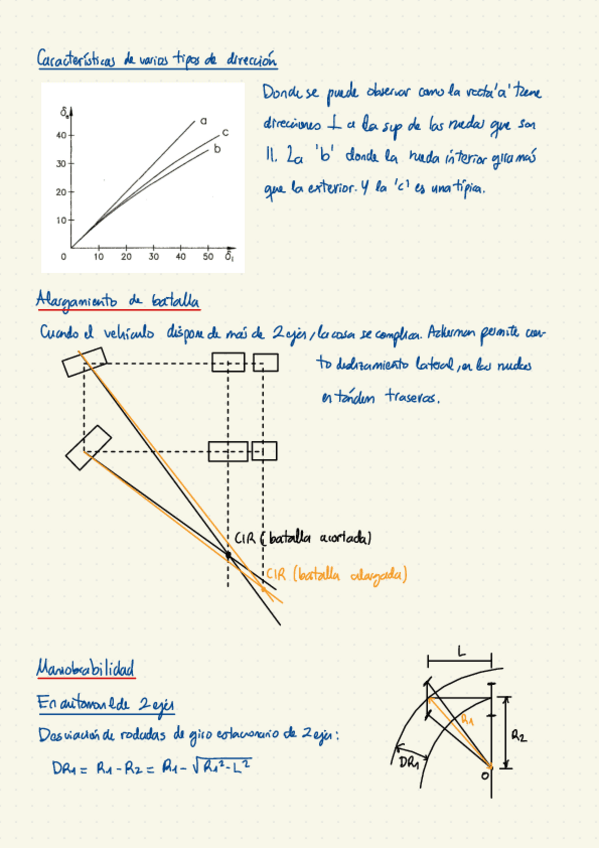 Características de varios tipos de dirección
Donde se puede observar como la recta 'a' tiene
direcciones ⊥ a la sup de las ruedas que son
II. La 'b' donde la rueda interior gira más
que la exterior. Y la 'c' es una típica.
δe
40
30
20
10
0
10
20
30
40
50
δi
a
c
b
Alargamiento de batalla
Cuando el vehículo dispone de más de 2 ejes, la cosa se complica. Ackerman permite cier-
to deslizamiento lateral, en las ruedas
en tándem traseras.
CIR (batalla acortada)
CIR (batalla alargada)
Maniobrabilidad
En automovil de 2 ejes
Desviación de rodadas de giro estacionario de 2 ejes:
DR1 = R1 - R2 = R1 - √R1² - L²
L
R1
R2
DR1
O